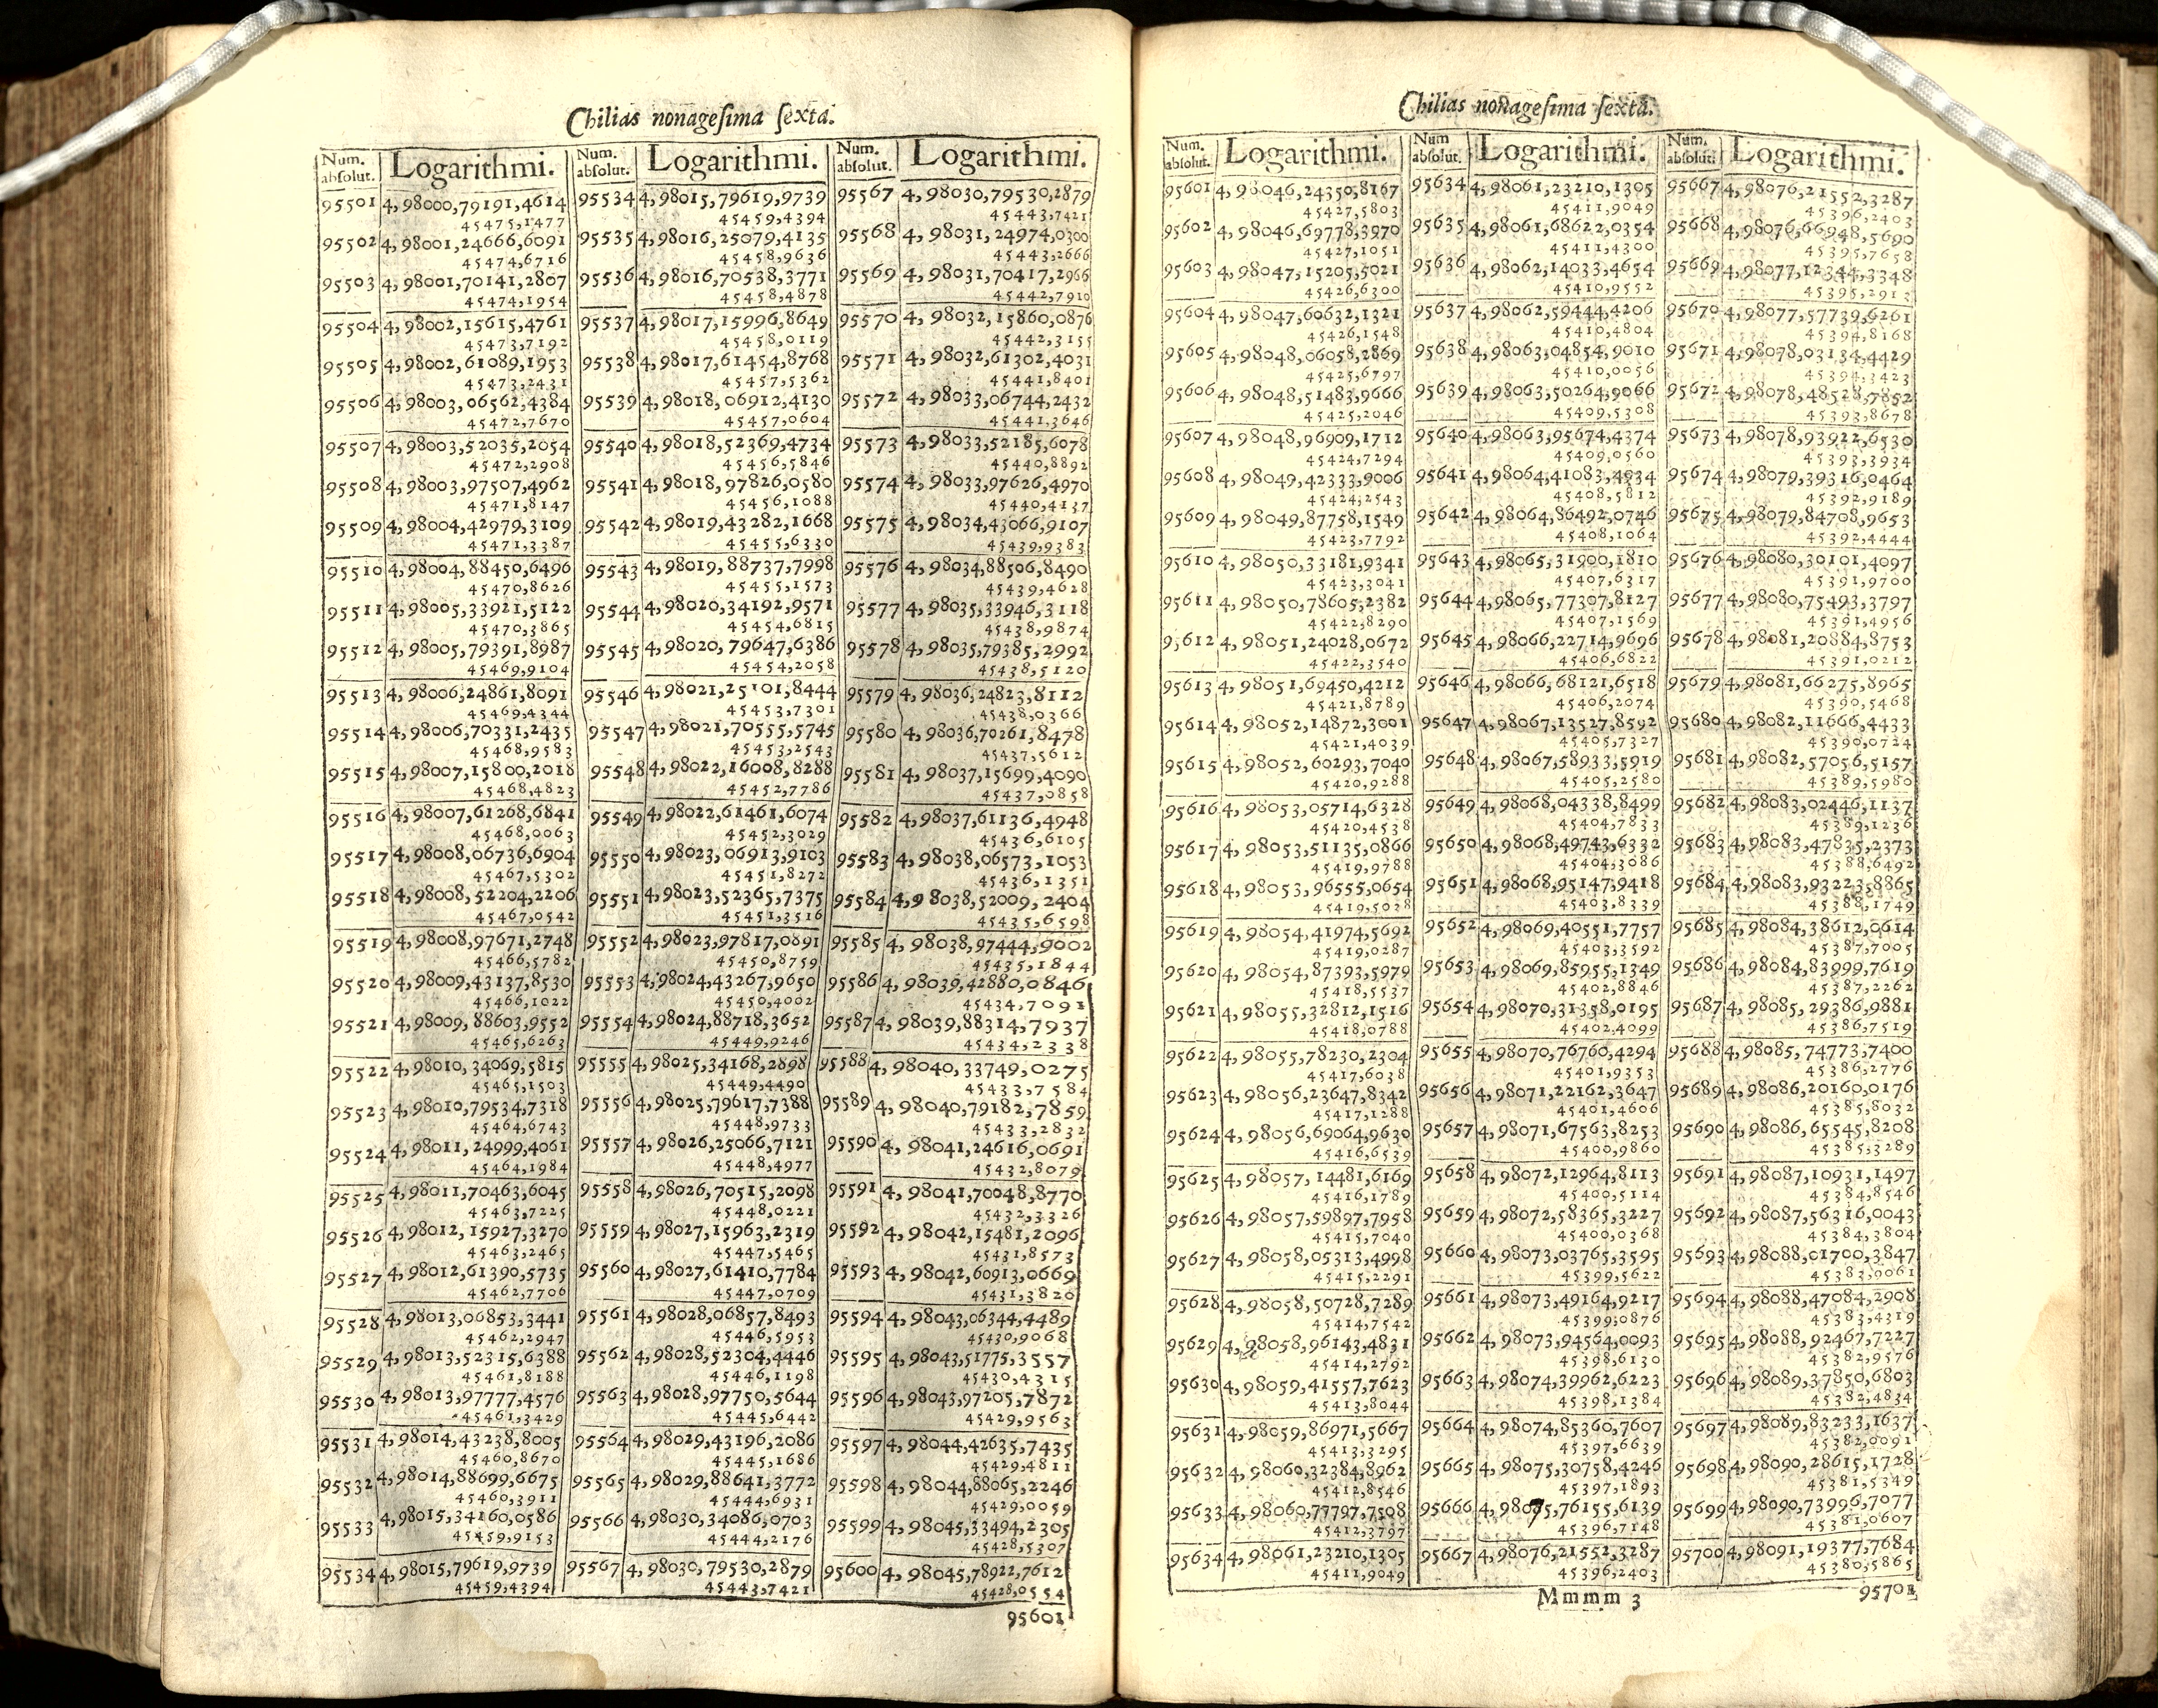 Chilias nonageſima ſexta.
Num. abſolut. Logarithmi.
95501 4,98000,79191,4614
45475,1477
95502 4,98001,24666,6091
45474,6716
95503 4,98001,70141,2807
45474,1954
95504 4,98002,15615,4761
45473,7192
95505 4,98002,61089,1953
45473,2431
95506 4,98003,06562,4384
45472,7670
95507 4,98003,52035,2054
45472,2908
95508 4,98003,97507,4962
45471,8147
95509 4,98004,42979,3109
45471,3387
95510 4,98004,88450,6496
45470,8626
95511 4,98005,33921,5122
45470,3865
95512 4,98005,79391,8987
45469,9104
95513 4,98006,24861,8091
45469,4344
95514 4,98006,70331,2435
45468,9583
95515 4,98007,15800,2018
45468,4823
95516 4,98007,61268,6841
45468,0063
95517 4,98008,06736,6904
45467,5302
95518 4,98008,52204,2206
45467,0542
95519 4,98008,97671,2748
45466,5782
95520 4,98009,43137,8530
45466,1022
95521 4,98009,88603,9552
45465,6263
95522 4,98010,34069,5815
45465,1503
95523 4,98010,79534,7318
45464,6743
95524 4,98011,24999,4061
45464,1984
95525 4,98011,70463,6045
45463,7225
95526 4,98012,15927,3270
45463,2465
95527 4,98012,61390,5735
45462,7706
95528 4,98013,06853,3441
45462,2947
95529 4,98013,52315,6388
45461,8188
95530 4,98013,97777,4576
45461,3429
95531 4,98014,43238,8005
45460,8670
95532 4,98014,88699,6675
45460,3911
95533 4,98015,34160,0586
45459,9153
95534 4,98015,79619,9739
45459,4394
Num. abſolut. Logarithmi.
95534 4,98015,79619,9739
45459,4394
95535 4,98016,25079,4135
45458,9636
95536 4,98016,70538,3771
45458,4878
95537 4,98017,15996,8649
45458,0119
95538 4,98017,61454,8768
45457,5362
95539 4,98018,06912,4130
45457,0604
95540 4,98018,52369,4734
45456,5846
95541 4,98018,97826,0580
45456,1088
95542 4,98019,43282,1668
45455,6330
95543 4,98019,88737,7998
45455,1573
95544 4,98020,34192,9571
45454,6815
95545 4,98020,79647,6386
45454,2058
95546 4,98021,25101,8444
45453,7301
95547 4,98021,70555,5745
45453,2543
95548 4,98022,16008,8288
45452,7786
95549 4,98022,61461,6074
45452,3029
95550 4,98023,06913,9103
45451,8272
95551 4,98023,52365,7375
45451,3516
95552 4,98023,97817,0891
45450,8759
95553 4,98024,43267,9650
45450,4002
95554 4,98024,88718,3652
45449,9246
95555 4,98025,34168,2898
45449,4490
95556 4,98025,79617,7388
45448,9733
95557 4,98026,25066,7121
45448,4977
95558 4,98026,70515,2098
45448,0221
95559 4,98027,15963,2319
45447,5465
95560 4,98027,61410,7784
45447,0709
95561 4,98028,06857,8493
45446,5953
95562 4,98028,52304,4446
45446,1198
95563 4,98028,97750,5644
45445,6442
95564 4,98029,43196,2086
45445,1686
95565 4,98029,88641,3772
45444,6931
95566 4,98030,34086,0703
45444,2176
95567 4,98030,79530,2879
45443,7421
Num. abſolut. Logarithmi.
95567 4,98030,79530,2879
45443,7421
95568 4,98031,24974,0300
45443,2666
95569 4,98031,70417,2966
45442,7910
95570 4,98032,15860,0876
45442,3155
95571 4,98032,61302,4031
45441,8401
95572 4,98033,06744,2432
45441,3646
95573 4,98033,52185,6078
45440,8892
95574 4,98033,97626,4970
45440,4137
95575 4,98034,43066,9107
45439,9383
95576 4,98034,88506,8490
45439,4628
95577 4,98035,33946,3118
45438,9874
95578 4,98035,79385,2992
45438,5120
95579 4,98036,24823,8112
45438,0366
95580 4,98036,70261,8478
45437,5612
95581 4,98037,15699,4090
45437,0858
95582 4,98037,61136,4948
45436,6105
95583 4,98038,06573,1053
45436,1351
95584 4,98038,52009,2404
45435,6598
95585 4,98038,97444,9002
45435,1844
95586 4,98039,42880,0846
45434,7091
95587 4,98039,88314,7937
45434,2338
95588 4,98040,33749,0275
45433,7584
95589 4,98040,79182,7859
45433,2832
95590 4,98041,24616,0691
45432,8079
95591 4,98041,70048,8770
45432,3326
95592 4,98042,15481,2096
45431,8573
95593 4,98042,60913,0669
45431,3820
95594 4,98043,06344,4489
45430,9068
95595 4,98043,51775,3557
45430,4315
95596 4,98043,97205,7872
45429,9563
95597 4,98044,42635,7435
45429,4811
95598 4,98044,88065,2246
45429,0059
95599 4,98045,33494,2305
45428,5307
95600 4,98045,78922,7612
45428,0554
95601
Chilias nonageſima ſexta.
Num. abſolut. Logarithmi.
95601 4,98046,24350,8167
45427,5803
95602 4,98046,69778,3970
45427,1051
95603 4,98047,15205,5021
45426,6300
95604 4,98047,60632,1321
45426,1548
95605 4,98048,06058,2869
45425,6797
95606 4,98048,51483,9666
45425,2046
95607 4,98048,96909,1712
45424,7294
95608 4,98049,42333,9006
45424,2543
95609 4,98049,87758,1549
45423,7792
95610 4,98050,33181,9341
45423,3041
95611 4,98050,78605,2382
45422,8290
95612 4,98051,24028,0672
45422,3540
95613 4,98051,69450,4212
45421,8789
95614 4,98052,14872,3001
45421,4039
95615 4,98052,60293,7040
45420,9288
95616 4,98053,05714,6328
45420,4538
95617 4,98053,51135,0866
45419,9788
95618 4,98053,96555,0654
45419,5028
95619 4,98054,41974,5692
45419,0287
95620 4,98054,87393,5979
45418,5537
95621 4,98055,32812,1516
45418,0788
95622 4,98055,78230,2304
45417,6038
95623 4,98056,23647,8342
45417,1288
95624 4,98056,69064,9630
45416,6539
95625 4,98057,14481,6169
45416,1789
95626 4,98057,59897,7958
45415,7040
95627 4,98058,05313,4998
45415,2291
95628 4,98058,50728,7289
45414,7542
95629 4,98058,96143,4831
45414,2792
95630 4,98059,41557,7623
45413,8044
95631 4,98059,86971,5667
45413,3295
95632 4,98060,32384,8962
45412,8546
95633 4,98060,77797,7508
45412,3797
95634 4,98061,23210,1305
45411,9049
Num abſolut. Logarithmi.
95634 4,98061,23210,1305
45411,9049
95635 4,98061,68622,0354
45411,4300
95636 4,98062,14033,4654
45410,9552
95637 4,98062,59444,4206
45410,4804
95638 4,98063,04854,9010
45410,0056
95639 4,98063,50264,9066
45409,5308
95640 4,98063,95674,4374
45409,0560
95641 4,98064,41083,4934
45408,5812
95642 4,98064,86492,0746
45408,1064
95643 4,98065,31900,1810
45407,6317
95644 4,98065,77307,8127
45407,1569
95645 4,98066,22714,9696
45406,6822
95646 4,98066,68121,6518
45406,2074
95647 4,98067,13527,8592
45405,7327
95648 4,98067,58933,5919
45405,2580
95649 4,98068,04338,8499
45404,7833
95650 4,98068,49743,6332
45404,3086
95651 4,98068,95147,9418
45403,8339
95652 4,98069,40551,7757
45403,3592
95653 4,98069,85955,1349
45402,8846
95654 4,98070,31358,0195
45402,4099
95655 4,98070,76760,4294
45401,9353
95656 4,98071,22162,3647
45401,4606
95657 4,98071,67563,8253
45400,9860
95658 4,98072,12964,8113
45400,5114
95659 4,98072,58365,3227
45400,0368
95660 4,98073,03765,3595
45399,5622
95661 4,98073,49164,9217
45399,0876
95662 4,98073,94564,0093
45398,6130
95663 4,98074,39962,6223
45398,1384
95664 4,98074,85360,7607
45397,6639
95665 4,98075,30758,4246
45397,1893
95666 4,98075,76155,6139
45396,7148
95667 4,98076,21552,3287
45396,2403
Mmmm 3
Num. abſolut. Logarithmi.
95667 4,98076,21552,3287
45396,2403
95668 4,98076,66948,5690
45395,7658
95669 4,98077,12344,3348
45395,2913
95670 4,98077,57739,6261
45394,8168
95671 4,98078,03134,4429
45394,3423
95672 4,98078,48528,7852
45393,8678
95673 4,98078,93922,6530
45393,3934
95674 4,98079,39316,0464
45392,9189
95675 4,98079,84708,9653
45392,4444
95676 4,98080,30101,4097
45391,9700
95677 4,98080,75493,3797
45391,4956
95678 4,98081,20884,8753
45391,0212
95679 4,98081,66275,8965
45390,5468
95680 4,98082,11666,4433
45390,0724
95681 4,98082,57056,5157
45389,5980
95682 4,98083,02446,1137
45389,1236
95683 4,98083,47835,2373
45388,6492
95684 4,98083,93223,8865
45388,1749
95685 4,98084,38612,0614
45387,7005
95686 4,98084,83999,7619
45387,2262
95687 4,98085,29386,9881
45386,7519
95688 4,98085,74773,7400
45386,2776
95689 4,98086,20160,0176
45385,8032
95690 4,98086,65545,8208
45385,3289
95691 4,98087,10931,1497
45384,8546
95692 4,98087,56316,0043
45384,3804
95693 4,98088,01700,3847
45383,9061
95694 4,98088,47084,2908
45383,4319
95695 4,98088,92467,7227
45382,9576
95696 4,98089,37850,6803
45382,4834
95697 4,98089,83233,1637
45382,0091
95698 4,98090,28615,1728
45381,5349
95699 4,98090,73996,7077
45381,0607
95700 4,98091,19377,7684
45380,5865
95701